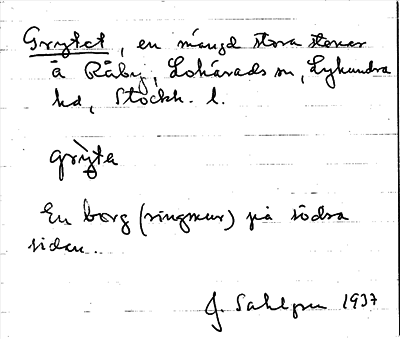 Grytet, en mängd stora stenar
å Råby, Lohärads sn, Lyhundra
hd, Stockh. l.
grỳta
En borg (ringmur) på södra
sidan.
J. Sahlgren 1937